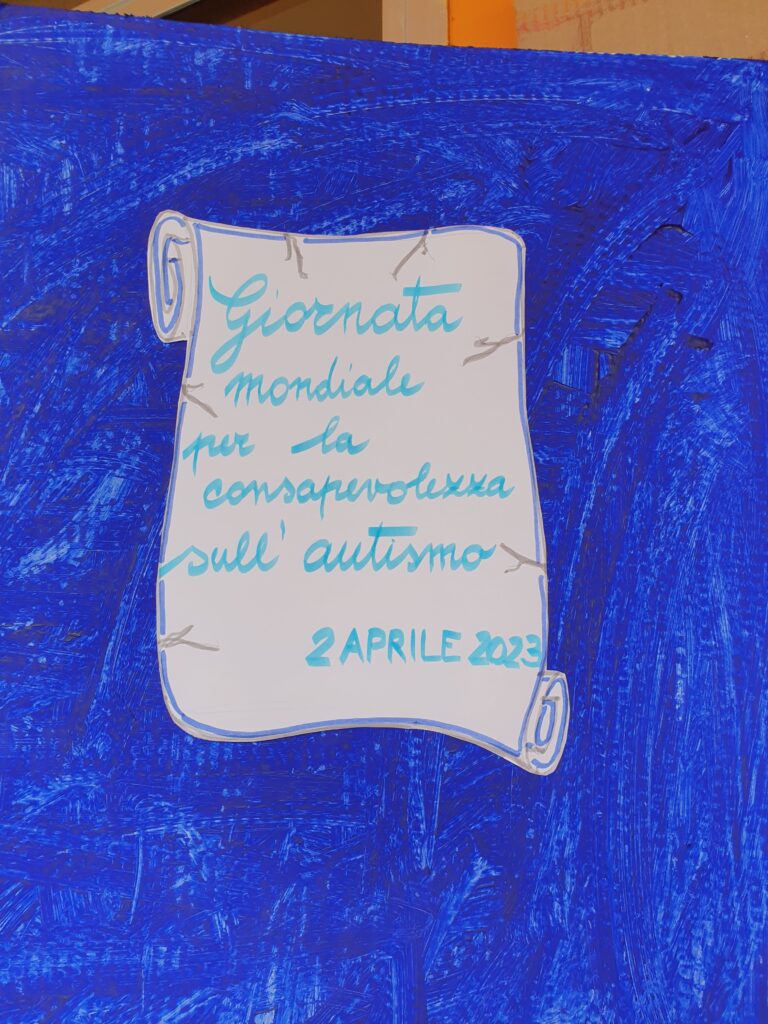 Giornata
mondiale
per la
consapevolezza
sull' autismo
2 APRILE 2023